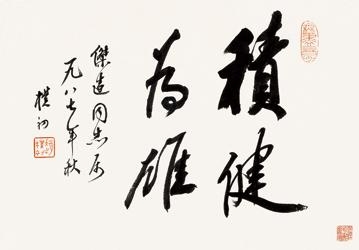 積健
為雄
傑造同志屬
一九八七年秋
樸初